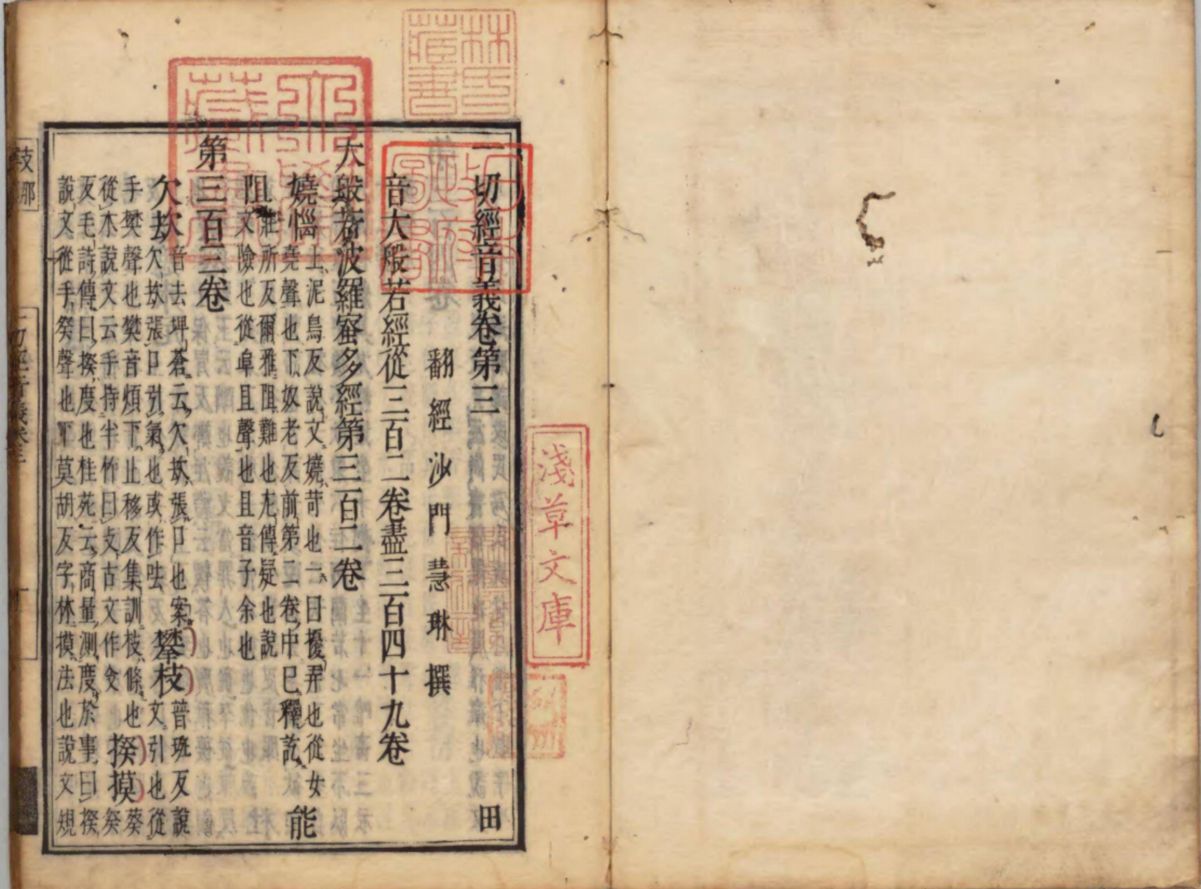 一切經音義卷第三
田
翻經沙門慧琳撰
音大般若經從三百二卷盡三百四十九卷
大般若波羅蜜多經第三百二卷
嬈惱
上泥鳥反說文嬈苛也一曰擾弄也從女
堯聲也下奴老反前第二卷中已釋訖
能阻
莊所反爾雅阻難也左傳疑也說
文險也從阜且聲也且音子余也
第三百三卷
欠㰦
音去埤蒼云欠㰦張口也案
欠㰦張口引氣也或作呿
攀枝
普班反說文引也從
手樊聲也樊音煩下止移反集訓枝條也
從木說文云手持半竹曰支古文作
揆摸
葵癸
反毛詩傳曰揆度也桂苑云商量測度於事曰揆
說文從手癸聲也下莫胡反字林摸法也說文規
淺草文庫
林氏藏書